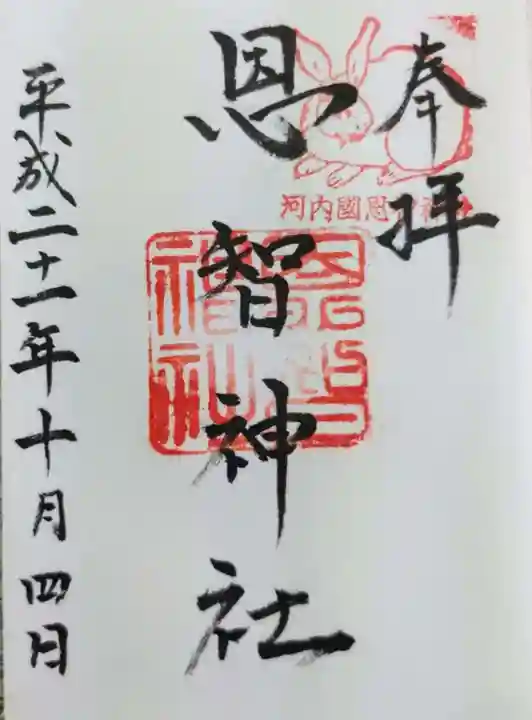 奉拝
河内國恩智神社
恩智神社
恩智神社
平成二十一年十月四日